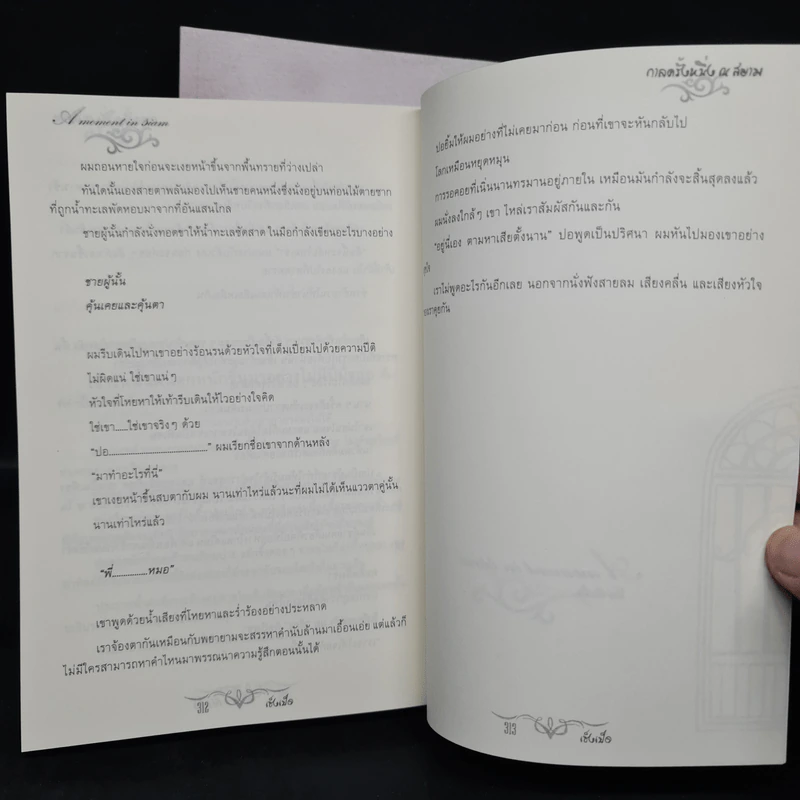 A moment in Siam
ผมถอนหายใจก่อนจะเงยหน้าขึ้นจากพื้นทรายที่ว่างเปล่า
ทันใดนั้นเองสายตาพลันมองไปเห็นชายคนหนึ่งซึ่งนั่งอยู่บนท่อนไม้ตายซาก
ที่ถูกน้ำทะเลพัดหอบมาจากที่อันแสนไกล
ชายผู้นั้นกำลังนั่งทอดขาให้น้ำทะเลซัดสาด ในมือกำลังเขียนอะไรบางอย่าง
ชายผู้นั้น
คุ้นเคยและคุ้นตา
ผมรีบเดินไปหาเขาอย่างร้อนรนด้วยหัวใจที่เต็มเปี่ยมไปด้วยความปีติ
ไม่ผิดแน่ ใช่เขาแน่ๆ
หัวใจที่โหยหาให้เท้ารีบเดินให้ไวอย่างใจคิด
ใช่เขา......ใช่เขาจริงๆ ด้วย
“ปอ..........................................” ผมเรียกชื่อเขาจากด้านหลัง
“มาทำอะไรที่นี่”
เขาเงยหน้าขึ้นสบตากับผม นานเท่าไหร่แล้วนะที่ผมไม่ได้เห็นแววตาคู่นั้น
นานเท่าไหร่แล้ว
“พี่...............หมอ”
เขาพูดด้วยน้ำเสียงที่โหยหาและร่ำร้องอย่างประหลาด
เราจ้องตากันเหมือนกับพยายามจะสรรหาคำนับล้านมาเอื้อนเอ่ย แต่แล้วก็
ไม่มีใครสามารถหาคำไหนมาพรรณนาความรู้สึกตอนนั้นได้
312
เซ็งเป็ด
กาลครั้งหนึ่ง ณ สยาม
ปอยิ้มให้ผมอย่างที่ไม่เคยมาก่อน ก่อนที่เขาจะหันกลับไป
โลกเหมือนหยุดหมุน
การรอคอยที่เนิ่นนานทรมานอยู่ภายใน เหมือนมันกำลังจะสิ้นสุดลงแล้ว
ผมนั่งลงใกล้ๆ เขา ไหล่เราสัมผัสกันและกัน
“อยู่นี่เอง ตามหาเสียตั้งนาน” ปอพูดเป็นปริศนา ผมหันไปมองเขาอยาง
เราไม่พูดอะไรกันอีกเลย นอกจากนั่งฟังสายลม เสียงคลื่น และเสียงหัวใจ
เราคุยกัน
313
เซ็งเป็ด